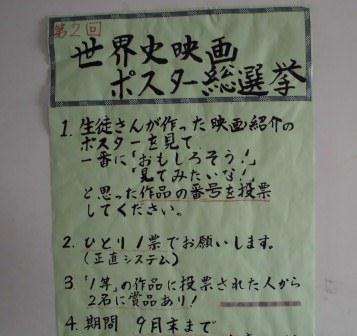 第2回
世界史映画
ポスター総選挙
1. 生徒さんが作った映画紹介の
ポスターを見て
一番に「おもしろそう!」
「見てみたいな!」
と思った作品の番号を投票
してください。
2. ひとり1票でお願いします。
(正直システム)
3 「1等」の作品に投票された人から
2名に賞品あり!
4. 期間 9月末まで